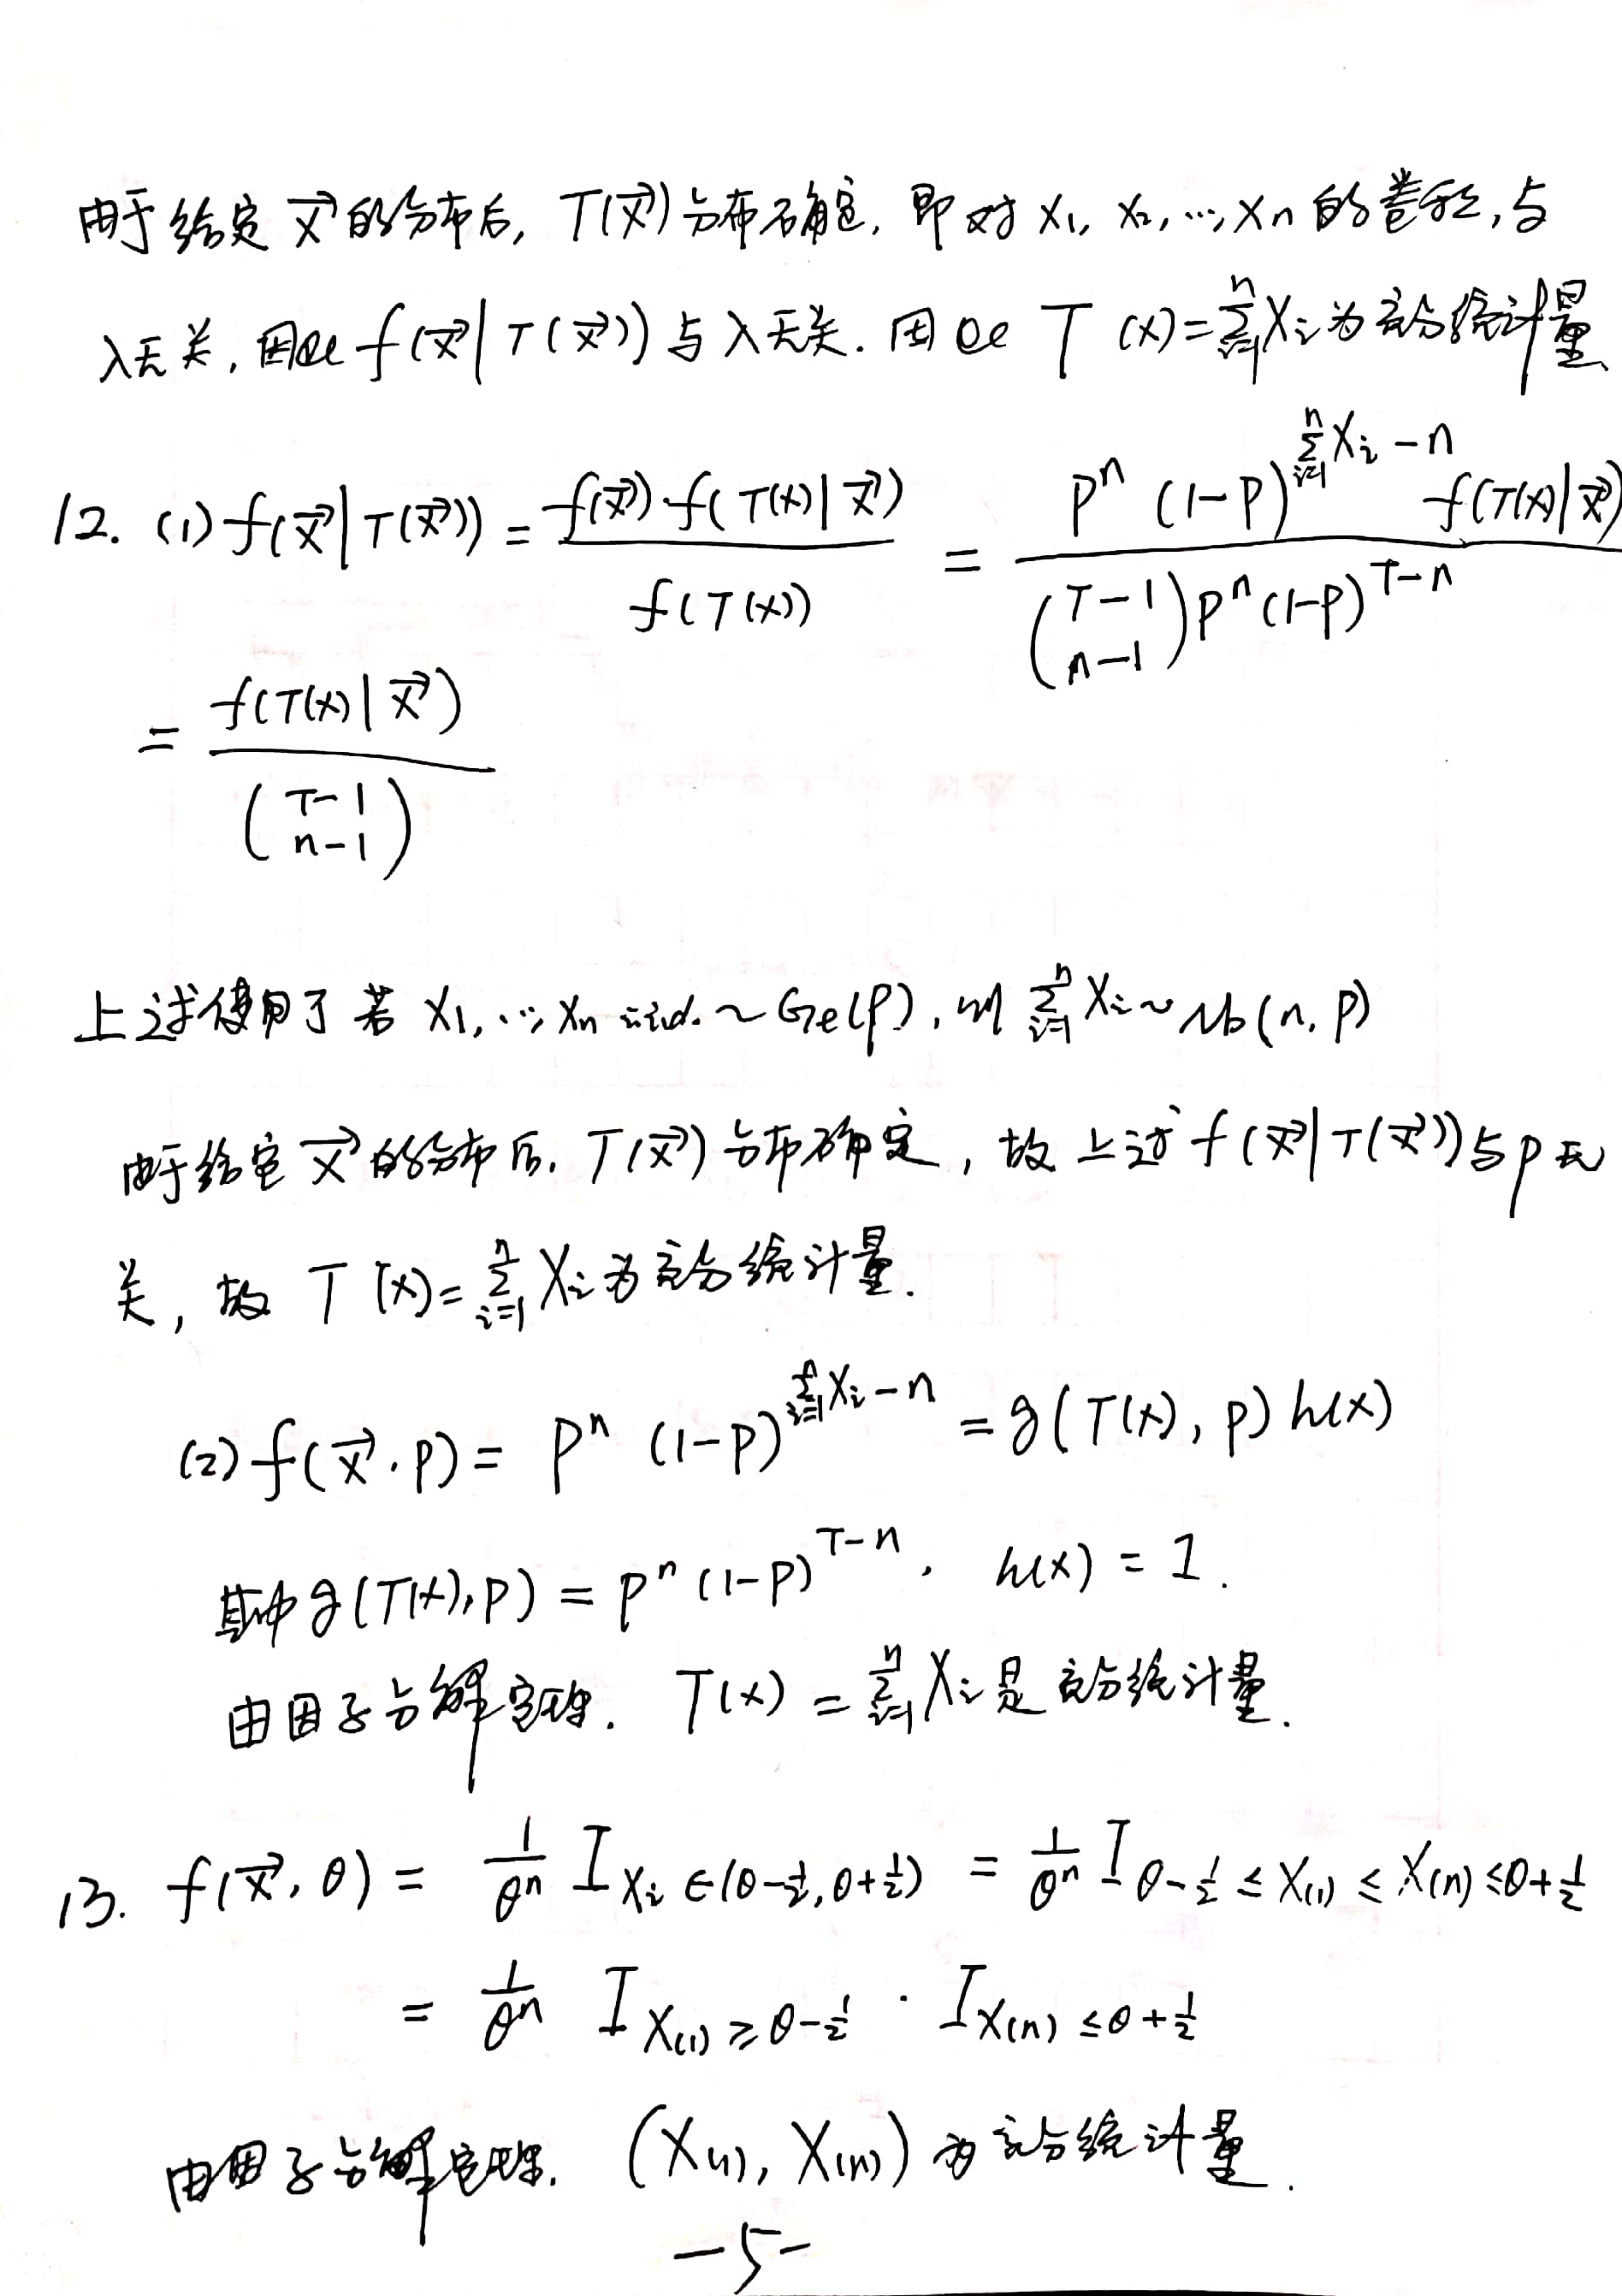 由于给定 X⃗ 的分布后, T(X⃗) 分布确定, 即对 X₁, X₂, …, Xn 的卷积, 与
λ无关, 因此 f(X⃗ | T(X⃗)) 与 λ 无关. 因此 T (X) = ∑ᵢ₌₁ⁿ Xᵢ 为充分统计量
12. (1) f(X⃗ | T(X⃗)) = f(X⃗)·f(T(X) | X⃗) / f(T(X)) = Pⁿ (1-P)^(∑ᵢ₌₁ⁿ Xᵢ - n) f(T(X) | X⃗) / (T-1 n-1) Pⁿ (1-P)^(T-n)
= f(T(X) | X⃗) / (T-1 n-1)
上述使用了 若 X₁, …, Xn i.i.d. ~ Ge(P), 则 ∑ᵢ₌₁ⁿ Xᵢ ~ Nb(n, P)
由于给定 X⃗ 的分布后. T(X⃗) 分布确定, 故上述 f(X⃗ | T(X⃗)) 与 P 无
关, 故 T (X) = ∑ᵢ₌₁ⁿ Xᵢ 为充分统计量.
(2) f(X⃗, P) = Pⁿ (1-P)^(∑ᵢ₌₁ⁿ Xᵢ - n) = g(T(X), P) h(X)
其中 g(T(X), P) = Pⁿ (1-P)^(T-n), h(X) = 1.
由因子分解定理. T(X) = ∑ᵢ₌₁ⁿ Xᵢ 是充分统计量.
13. f(X⃗, θ) = 1/θⁿ I Xᵢ ∈ (θ-1/2, θ+1/2) = 1/θⁿ I θ-1/2 ≤ X(1) ≤ X(n) ≤ θ+1/2
= 1/θⁿ I X(1) ≥ θ-1/2 · I X(n) ≤ θ+1/2
由因子分解定理. (X(1), X(n)) 为充分统计量.
-5-